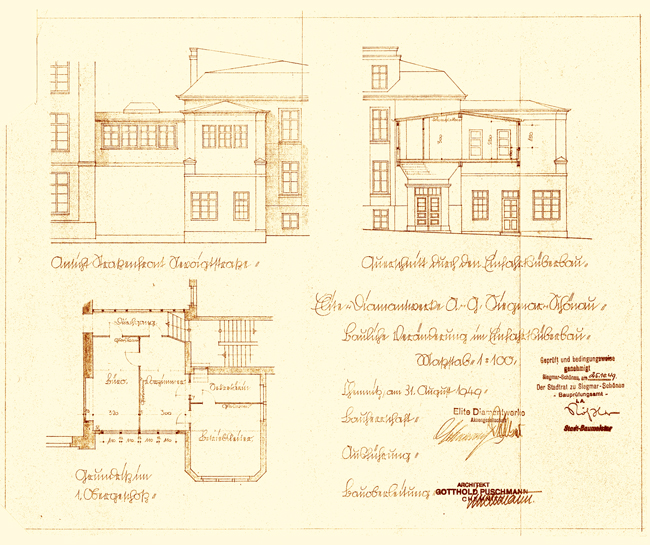 Ansicht Straßenfront
Querschnitt durch den Einfahrtsüberbau.
Elite-Diamantwerke A.-G. Siegmar-Schönau.
Bauliche Veränderung im Einfahrtsüberbau.
Maßstab 1:100.
Geprüft und bedingungsweise
genehmigt
Siegmar-Schönau, am 25.10.49
Der Stadtrat zu Siegmar-Schönau
- Bauprüfungsamt -
I.A.
Stadt-Baumeister
Chemnitz, am 31. August 1949.
Bauherrschaft:
Elite Diamantwerke
Aktiengesellschaft
Ausführung:
Bauoberleitung:
ARCHITEKT
GOTTHOLD PUSCHMANN
CHEMNITZ
Durchgang
Büro
Betriebsleiter
Grundriß im
1. Obergeschoß.